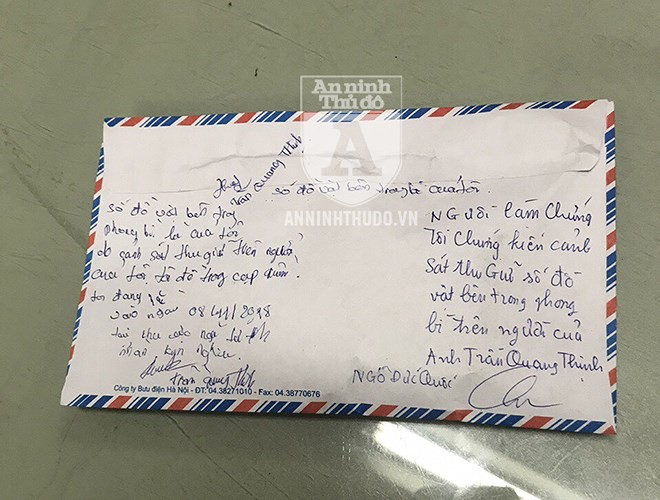 An ninh
Thủ đô
A
ANNINHTHUDO.VN
Trần Quang Thịnh
số đồ vật bên trong là của tôi.
số đồ vật bên trong
phong bì là của tôi
do cảnh sát thu giữ trên người
của tôi, tôi để trong cạp quần
tôi đang
vào ngày 08/11/2018
tại khu vực ngã tư
Trần Quang Thịnh
Người làm chứng
Tôi chứng kiến cảnh
Sát thu Giữ số đồ
vật bên trong phong
bì trên người của
Anh Trần Quang Thịnh
NGÔ Đức Quốc
Công ty Bưu điện Hà Nội - ĐT: 04.38271010 - Fax: 04.38770676